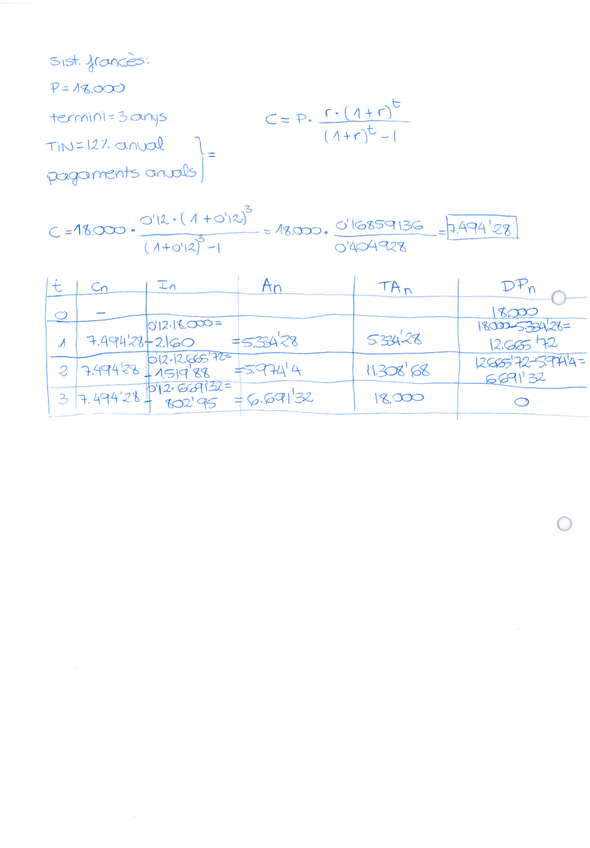 Sist. francès:
P = 18.000
termini = 3 anys
TiN = 12% anual
pagaments anuals } =
C = P · r · (1 + r)^t / (1 + r)^t - 1
C = 18.000 · 0'12 · (1 + 0'12)^3 / (1 + 0'12)^3 - 1 = 18.000 · 0'16859136 / 0'404928 = 7.494'28
t Cn In An TAn DPn
0 - 18.000
1 7.494'28 - 0'12·18.000= 2.160 = 5.334'28 5334'28 18.000-5334'28= 12.665'72
2 7.494'28 - 0'12·12.665'72= 1519'88 = 5.974'4 11.308'68 12665'72-5974'4= 6.691'32
3 7.494'28 - 0'12·6.691'32= 802'95 = 6.691'32 18.000 0